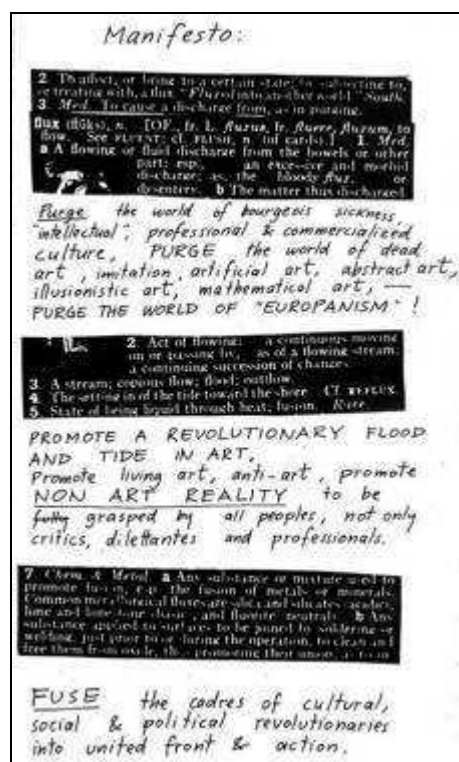 Manifesto:
2. To affect, or bring to a certain state, by subjecting to,
or treating with, a flux. "Fluxed into another world." South.
3. Med. To cause a discharge from, as in purging.
flux (flŭks), n. [OF., fr. L. fluxus, fr. fluere, fluxum, to
flow. See FLUENT; cf. FLUSH, n. (of cards).] 1. Med.
a A flowing or fluid discharge from the bowels or other
part: esp., an excessive and morbid
discharge: as, the bloody flux, or
dysentery. b The matter thus discharged.
Purge the world of bourgeois sickness,
"intellectual", professional & commercialized
culture, PURGE the world of dead
art, imitation, artificial art, abstract art,
illusionistic art, mathematical art, —
PURGE THE WORLD OF "EUROPANISM"!
2. Act of flowing: a continuous moving
on or passing by, as of a flowing stream;
a continuing succession of changes.
3. A stream; copious flow; flood; outflow.
4. The setting in of the tide toward the shore. Cf. REFLUX.
5. State of being liquid through heat; fusion. Rare.
PROMOTE A REVOLUTIONARY FLOOD
AND TIDE IN ART,
Promote living art, anti-art, promote
NON ART REALITY to be
fully grasped by all peoples, not only
critics, dilettantes and professionals.
7. Chem. & Metal. a Any substance or mixture used to
promote fusion, esp. the fusion of metals or minerals.
Common metallurgical fluxes are silica and silicates (acidic),
lime and limestone (basic), and fluorite (neutral). b Any
substance applied to surfaces to be joined by soldering or
welding, just prior to or during the operation, to clean and
free them from oxide, thus promoting their union, as rosin.
FUSE the cadres of cultural,
social & political revolutionaries
into united front & action.